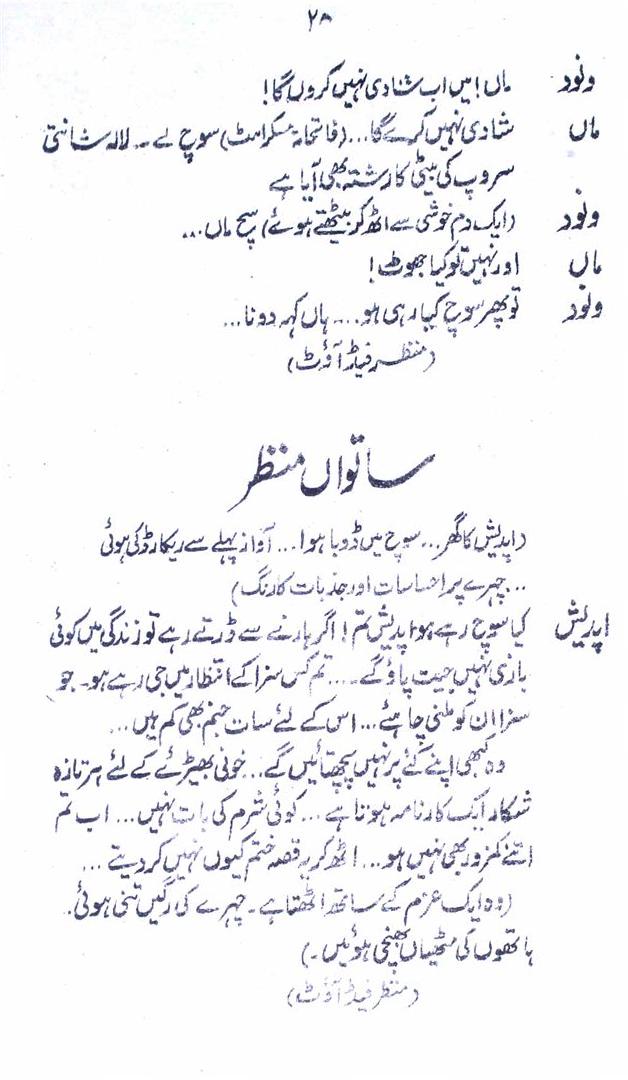 ۲۸
ونود ماں! میں اب شادی نہیں کروں گا!
ماں شادی نہیں کرے گا... (فاتحانہ مسکراہٹ) سوچ لے۔ لالہ شانتی
سروپ کی بیٹی کا رشتہ بھی آیا ہے
ونود (ایک دم خوشی سے اٹھ کر بیٹھتے ہوئے) سچ ماں...
ماں اور نہیں تو کیا جھوٹ!
ونود تو پھر سوچ کیا رہی ہو... ہاں کہہ دو نا...
(منظر فیڈ آؤٹ)
ساتواں منظر
(اپدیش کا گھر... سوچ میں ڈوبا ہوا... آواز پہلے سے ریکارڈ کی ہوئی
...چہرے پر احساسات اور جذبات کا رنگ)
اپدیش کیا سوچ رہے ہو اپدیش تم! اگر ہارنے سے ڈرتے رہے تو زندگی میں کوئی
بازی نہیں جیت پاؤ گے۔... تم کس سزا کے انتظار میں جی رہے ہو۔ جو
سزا ان کو ملنی چاہئے... اس کے لئے سات جنم بھی کم ہیں...
وہ کبھی اپنے کئے پر نہیں پچھتائیں گے... خونی بھیڑئے کے لئے ہر تازہ
شکار ایک کارنامہ ہوتا ہے... کوئی شرم کی بات نہیں... اب تم
اتنے کمزور بھی نہیں ہو... اٹھ کر یہ قصہ ختم کیوں نہیں کر دیتے...
(وہ ایک عزم کے ساتھ اٹھتا ہے۔ چہرے کی رگیں تنی ہوئی.
ہاتھوں کی مٹھیاں بھنچی ہوئیں۔)
(منظر فیڈ آؤٹ)